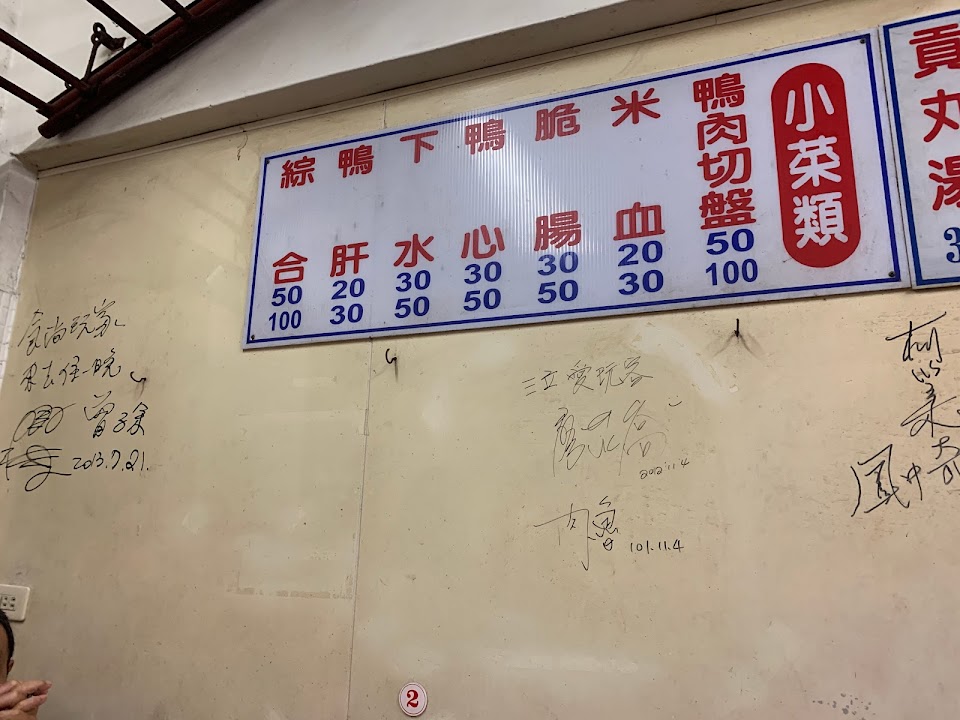 小菜類
鴨肉切盤 50 100
米血 20 30
脆腸 30 50
鴨心 30 50
下水 30 50
鴨肝 20 30
綜合 50 100
貢丸湯
3
食尚玩家
來去住一晚
曾子余
2013.7.21.
三立愛玩客
2012.11.4
101.11.4
2